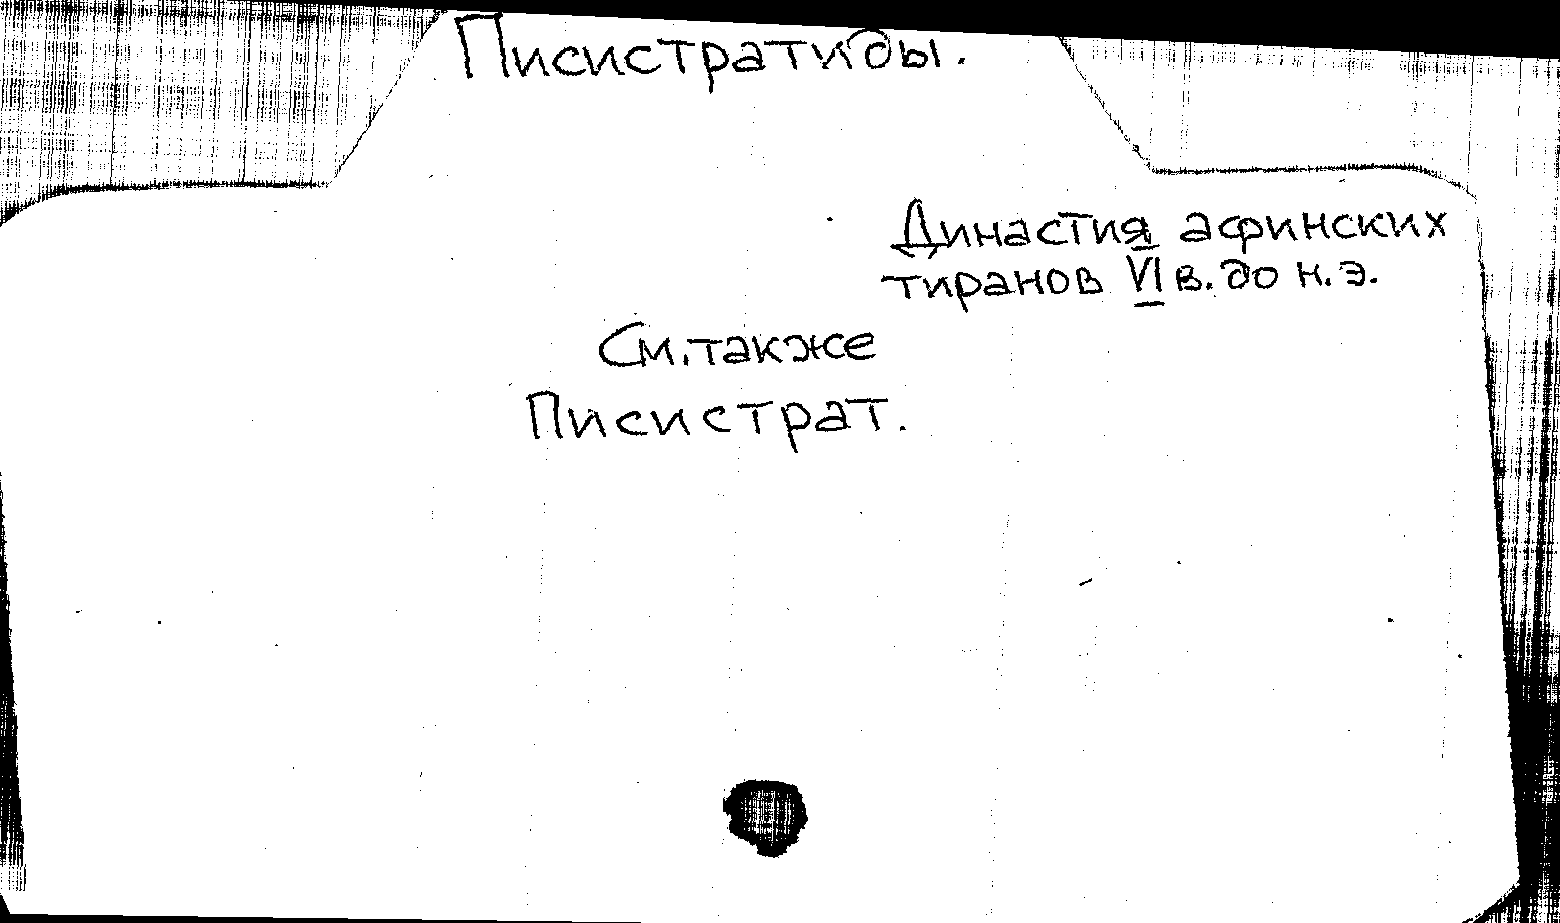 Писистратиды.
Династия афинских
тиранов VI в. до н. э.
См. также
Писистрат.